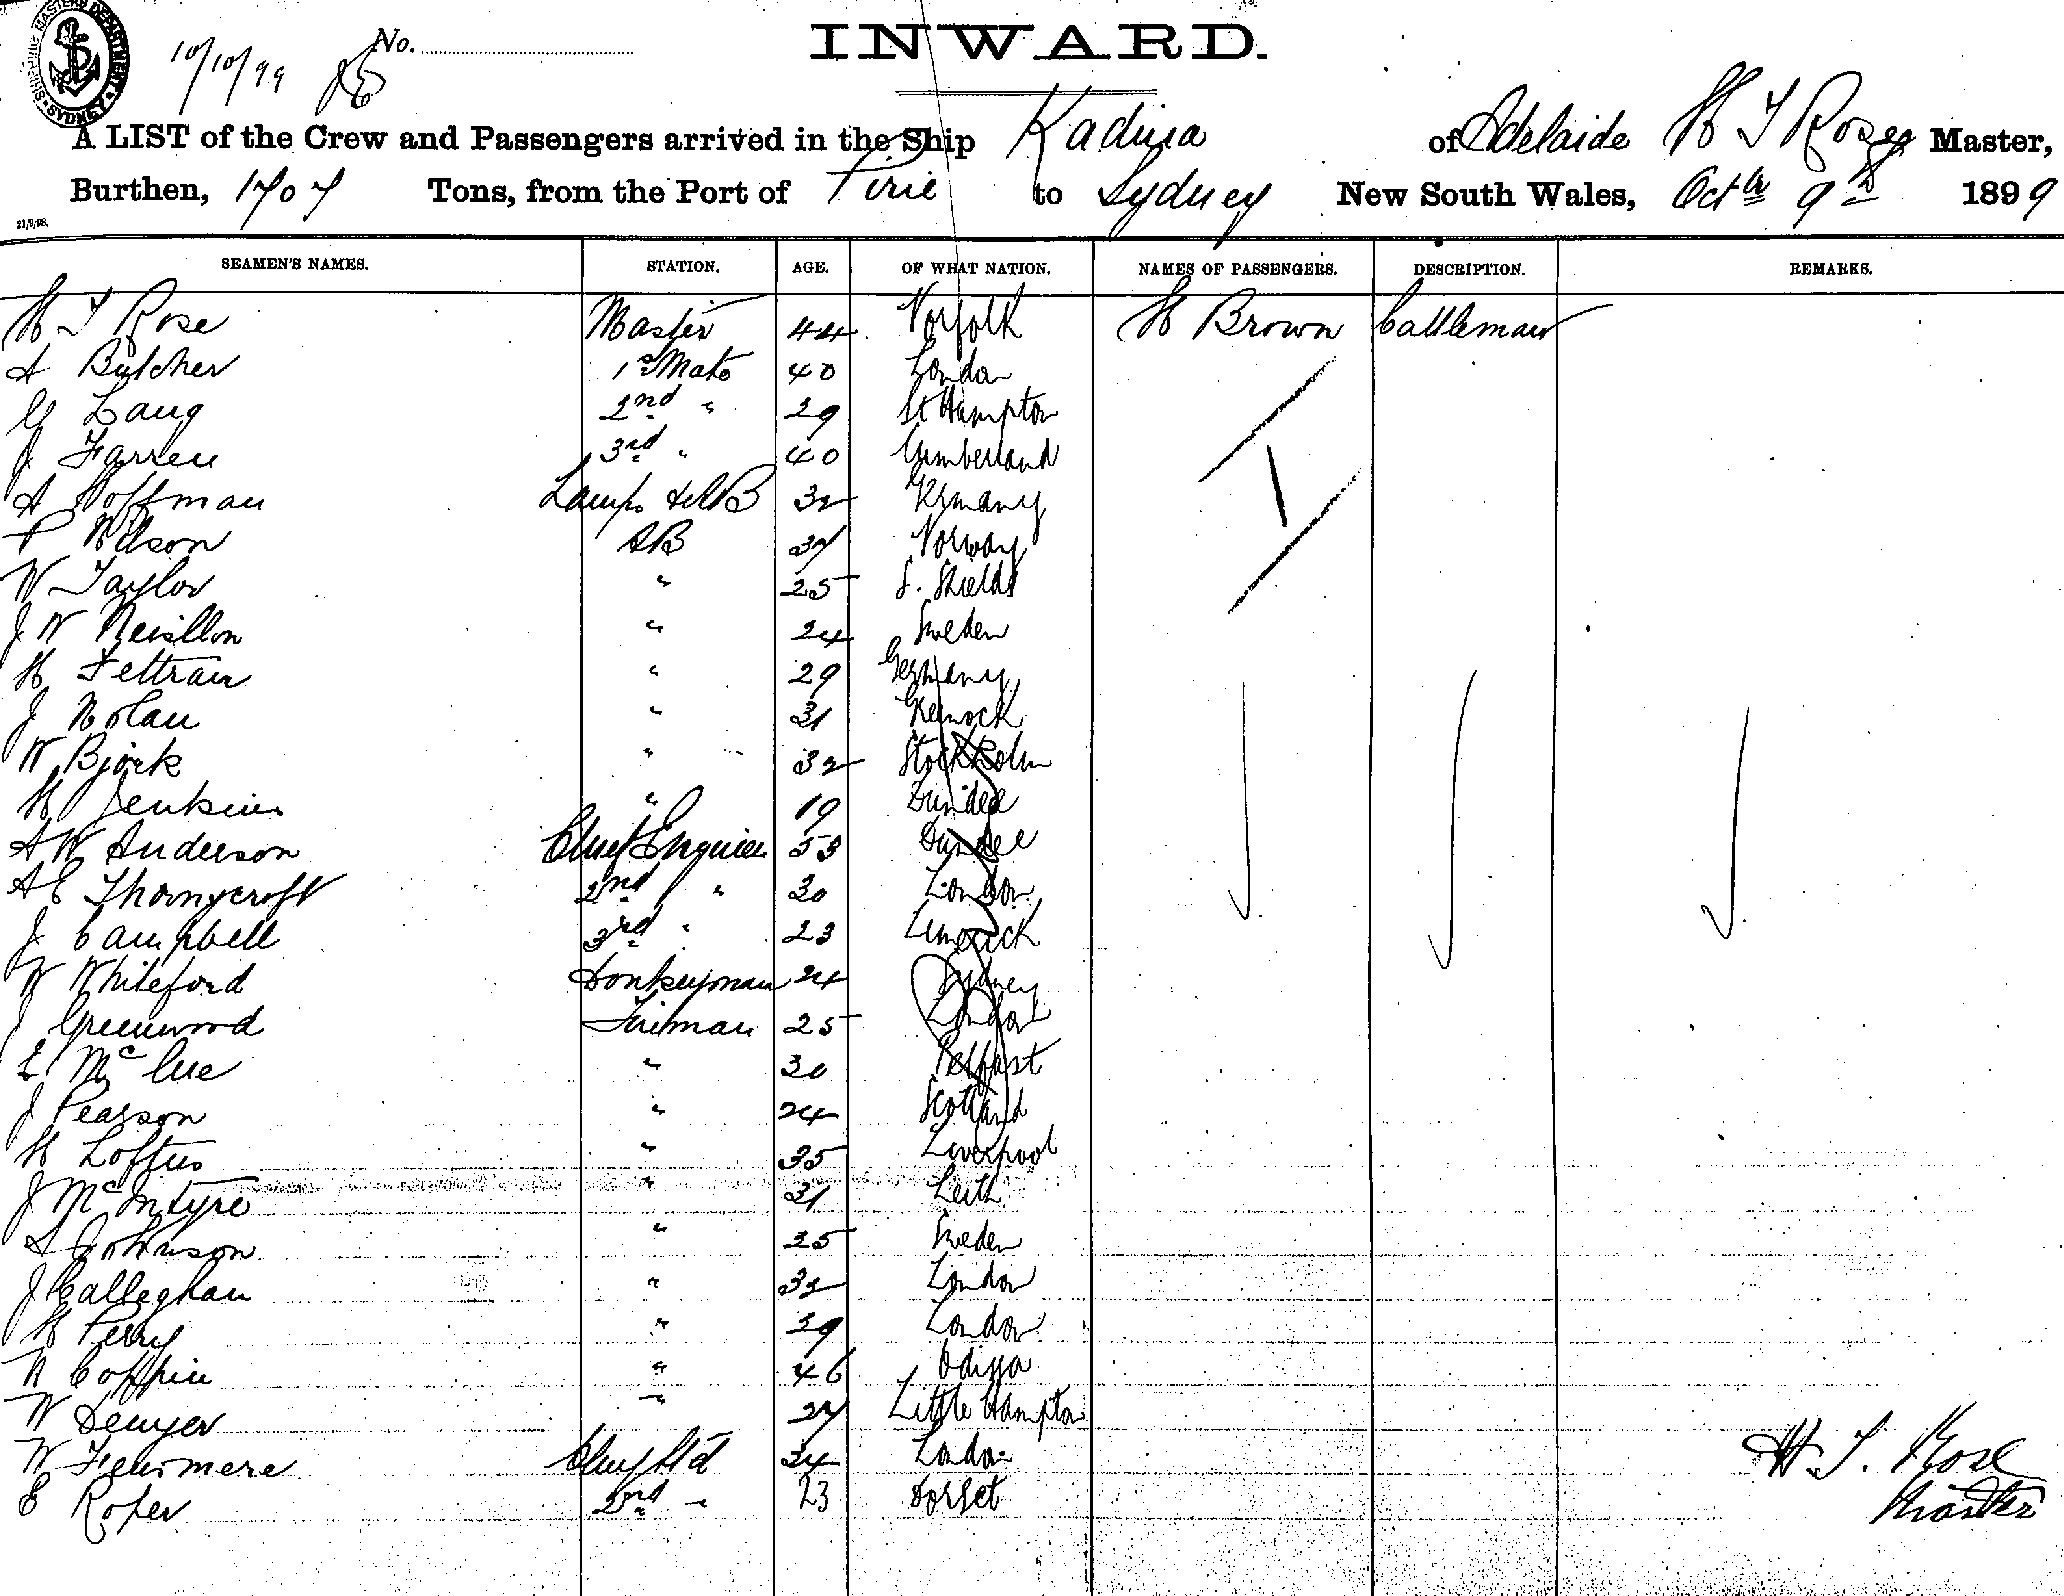 SHIPPING MASTERS DEPARTMENT SYDNEY
10/10/99 No.
INWARD.
A LIST of the Crew and Passengers arrived in the Ship Kadina of Adelaide H T Rose Master,
Burthen, 1707 Tons, from the Port of Pirie to Sydney New South Wales, Octbr 9th 1899
21/9/98.
SEAMEN'S NAMES. STATION. AGE. OF WHAT NATION. NAMES OF PASSENGERS. DESCRIPTION. REMARKS.
H T Rose Master 44 Norfolk H Brown Cattleman
A Butcher 1st Mate 40 London
G Lang 2nd " 29 St Hampton
J Farren 3rd " 40 Cumberland
A Hoffman Lamps & AB 32 Germany
P Wilson AB 37 Norway
W Taylor " 25 S. Shields
J W " 24 Sweden
H Feltran " 29 Germany
J Nolan " 31 Greenock
W Bjork " 32 Stockholm
H Jenkins " 19 Dundee
A W Anderson Chief Engineer 53 Dundee
A E Thornycroft 2nd " 30 London
J Campbell 3rd " 23 Limerick
W Whiteford Donkeyman 24 Sydney
J Greenwood Fireman 25
E McCue " 30 Belfast
J Pearson " 24 Scotland
H Loftus " 35 Liverpool
J McIntyre " 31 Leith
A Johnson " 35 Sweden
J Calleghan " 32 London
H Perry " 39 London
N Coppin " 46 Odissa
W Denyer " 27 Little Hampton
W Chief Std 34 London
E Roper 2nd " 23 Dorset
H. T. Rose
Master